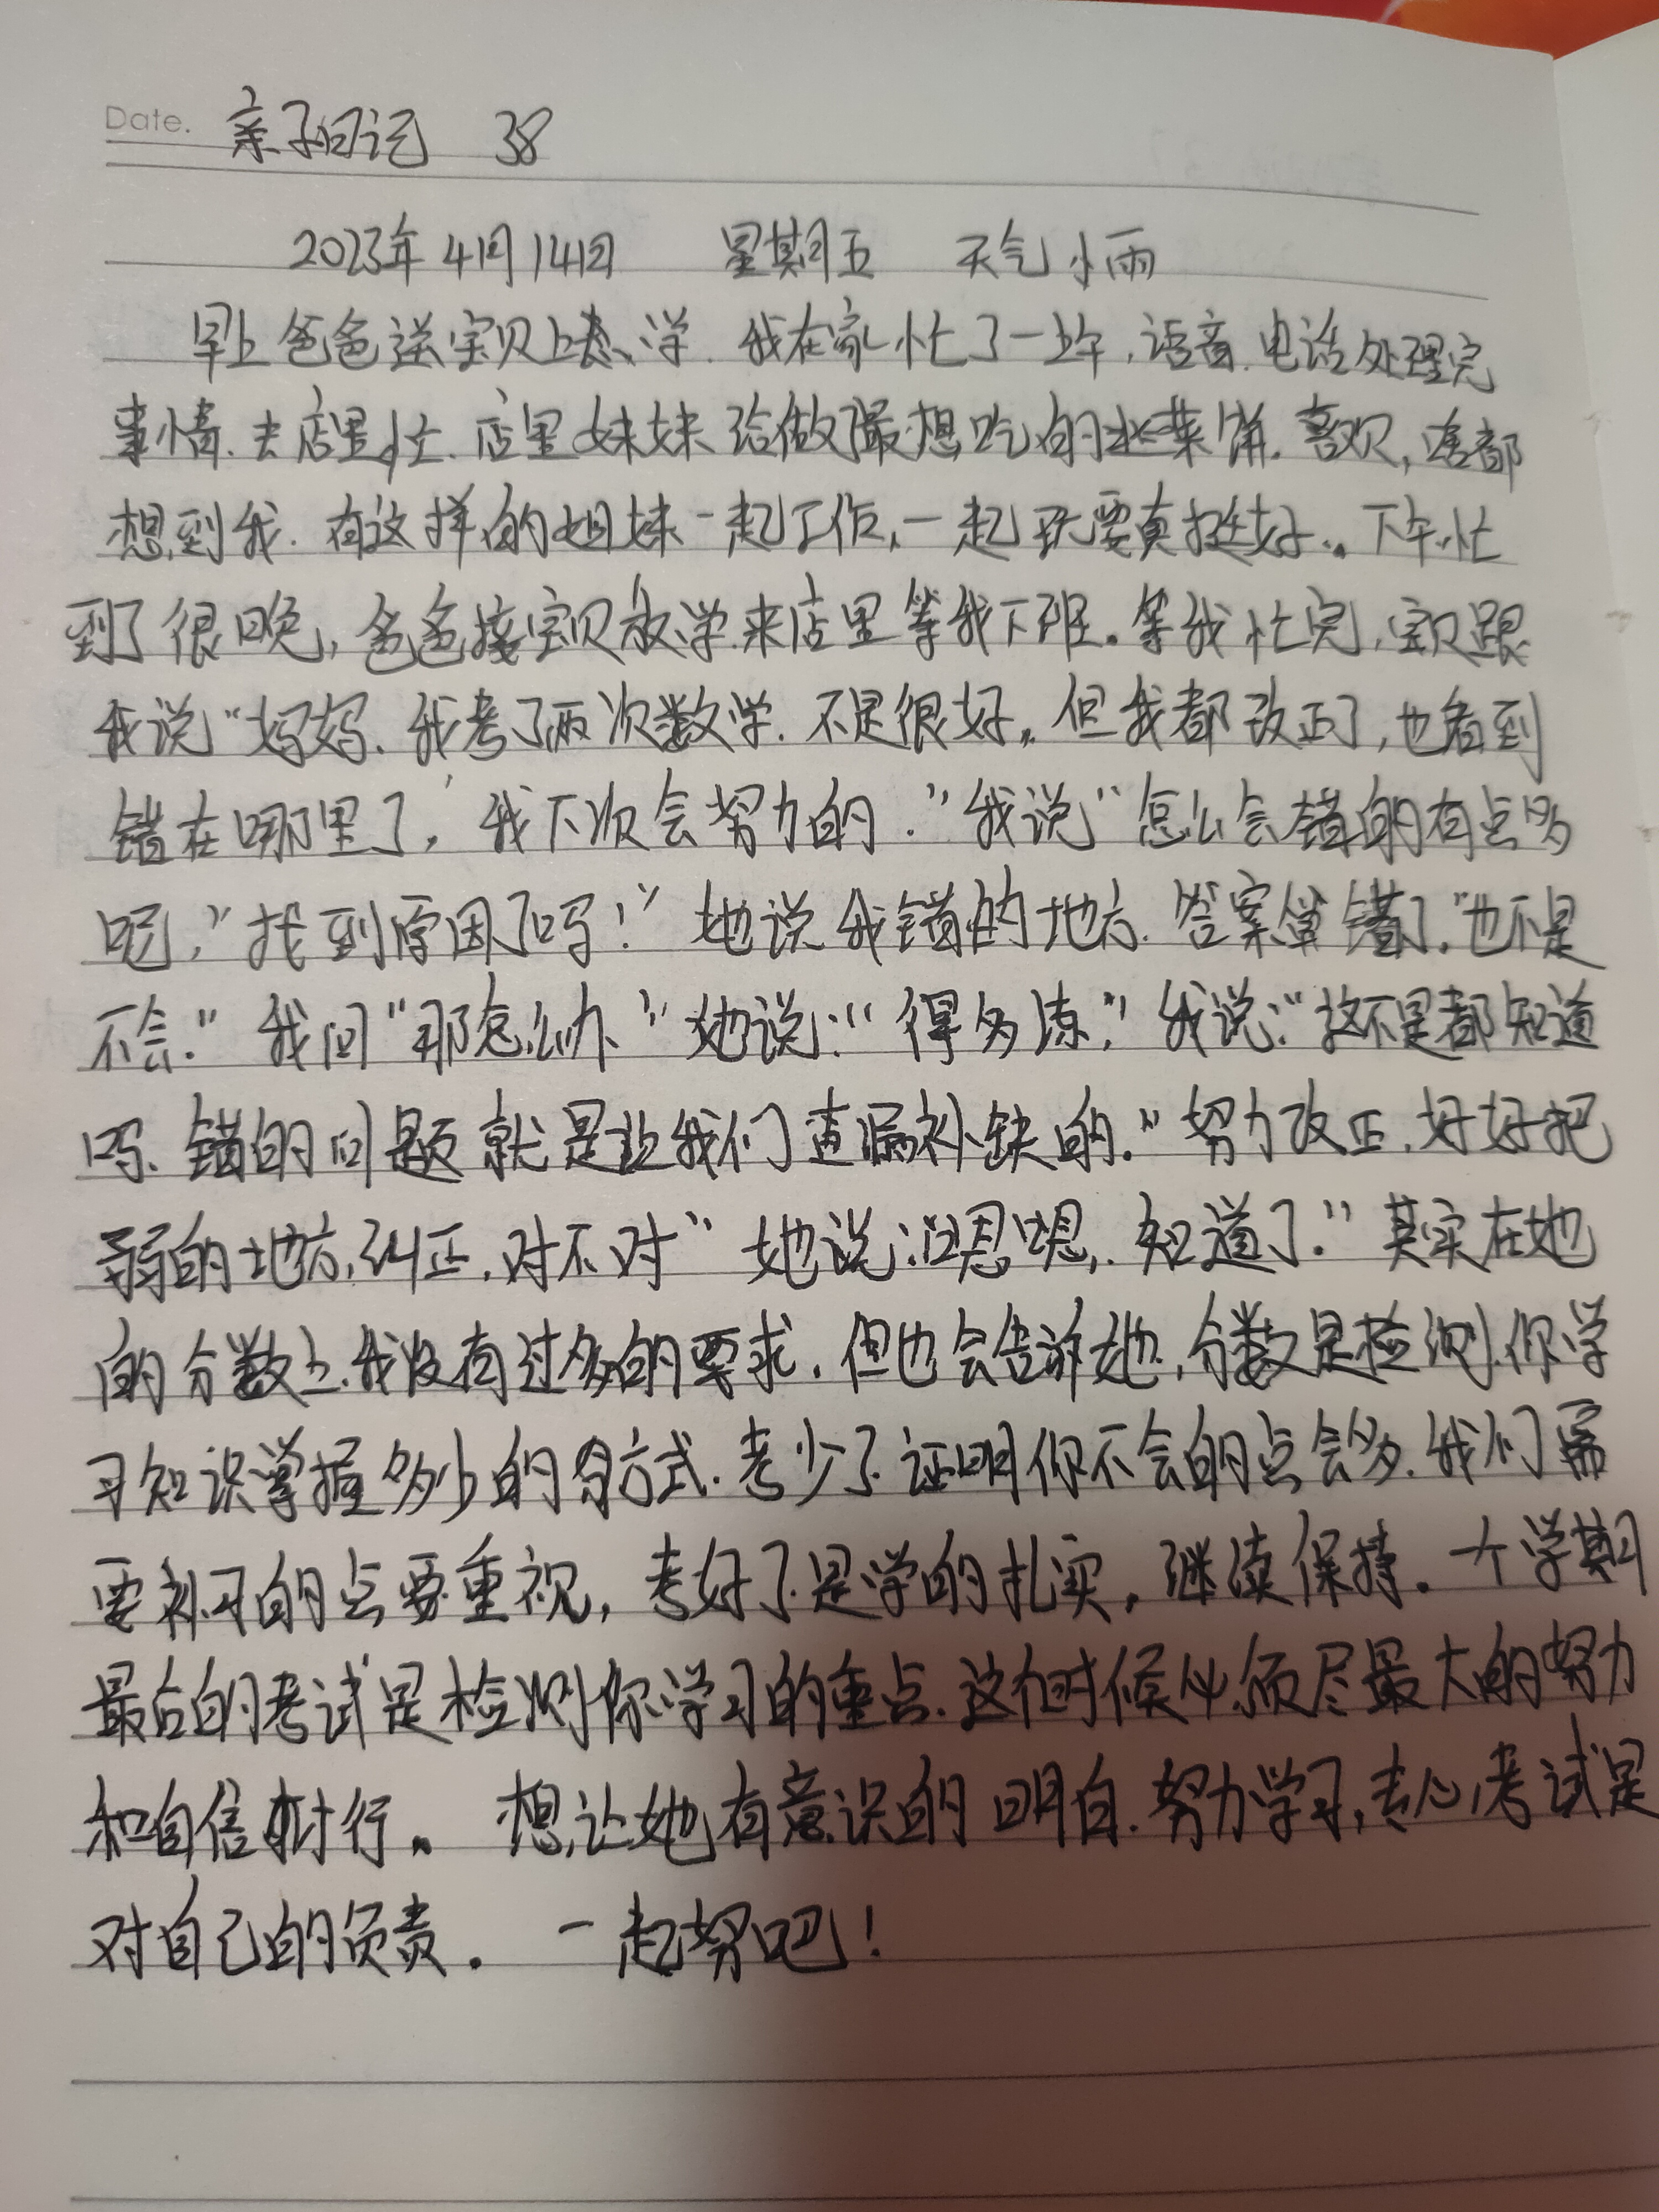 Date. 亲子日记 38
2023年4月14日 星期五 天气小雨
早上爸爸送宝贝上学.我在家忙了一上午,语音.电话处理完
事情.去店里忙.店里妹妹给做了最想吃的菜饼.喜欢,啥都
想到我.有这样的姐妹一起工作,一起玩耍真挺好。下午忙
到了很晚,爸爸接宝贝放学.来店里等我下班。等我忙完,宝贝跟
我说“妈妈.我考了两次数学.不是很好。但我都改正了,也看到
错在哪里了,我下次会努力的.”我说“怎么会错的有点多
呢,”找到原因了吗!”她说我错的地方.答案算错了.“也不是
不会.”我问“那怎么办、”她说:“得多练,”我说:“这不是都知道
吗、错的问题就是让我们查漏补缺的.“努力改正.好好把
弱的地方,纠正.对不对”她说:“嗯嗯,.知道了.”其实在她
的分数上.我没有过多的要求.但也会告诉她,分数是检测你学
习知识掌握多少的方式.考少了证明你不会的点会多.我们需
要补习的点要重视,考好了是学的扎实,继续保持。一个学期
最后的考试是检测你学习的重点.这个时候必须尽最大的努力
和自信才行。想让她有意识的明白.努力学习,专心考试是
对自己的负责. 一起努吧!